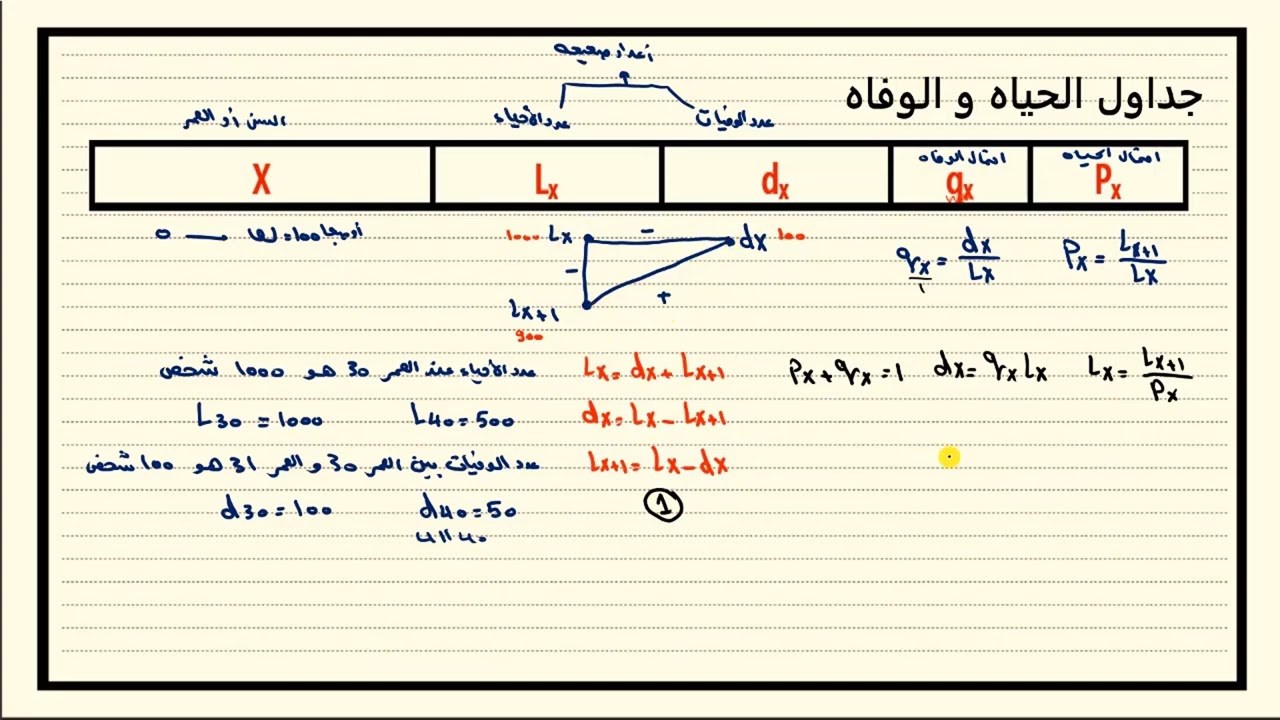 جداول الحياه و الوفاه
أعداد صحيحه
عدد الوفيات
عدد الأحياء
السن أو العمر
X
Lx
dx
احتمال الوفاه
qx
احتمال الحياه
Px
0
1000 Lx − dx 100
−
+
Lx+1
900
qx = dx/Lx
Px = Lx+1/Lx
عدد الأحياء عند العمر 30 هو 1000 شخص
Lx = dx + Lx+1
Px + qx = 1
dx = qx Lx
Lx = Lx+1/Px
L30 = 1000
L40 = 500
dx = Lx − Lx+1
عدد الوفيات بين العمر 30 و العمر 31 هو 100 شخص
Lx+1 = Lx − dx
d30 = 100
d40 = 50
1